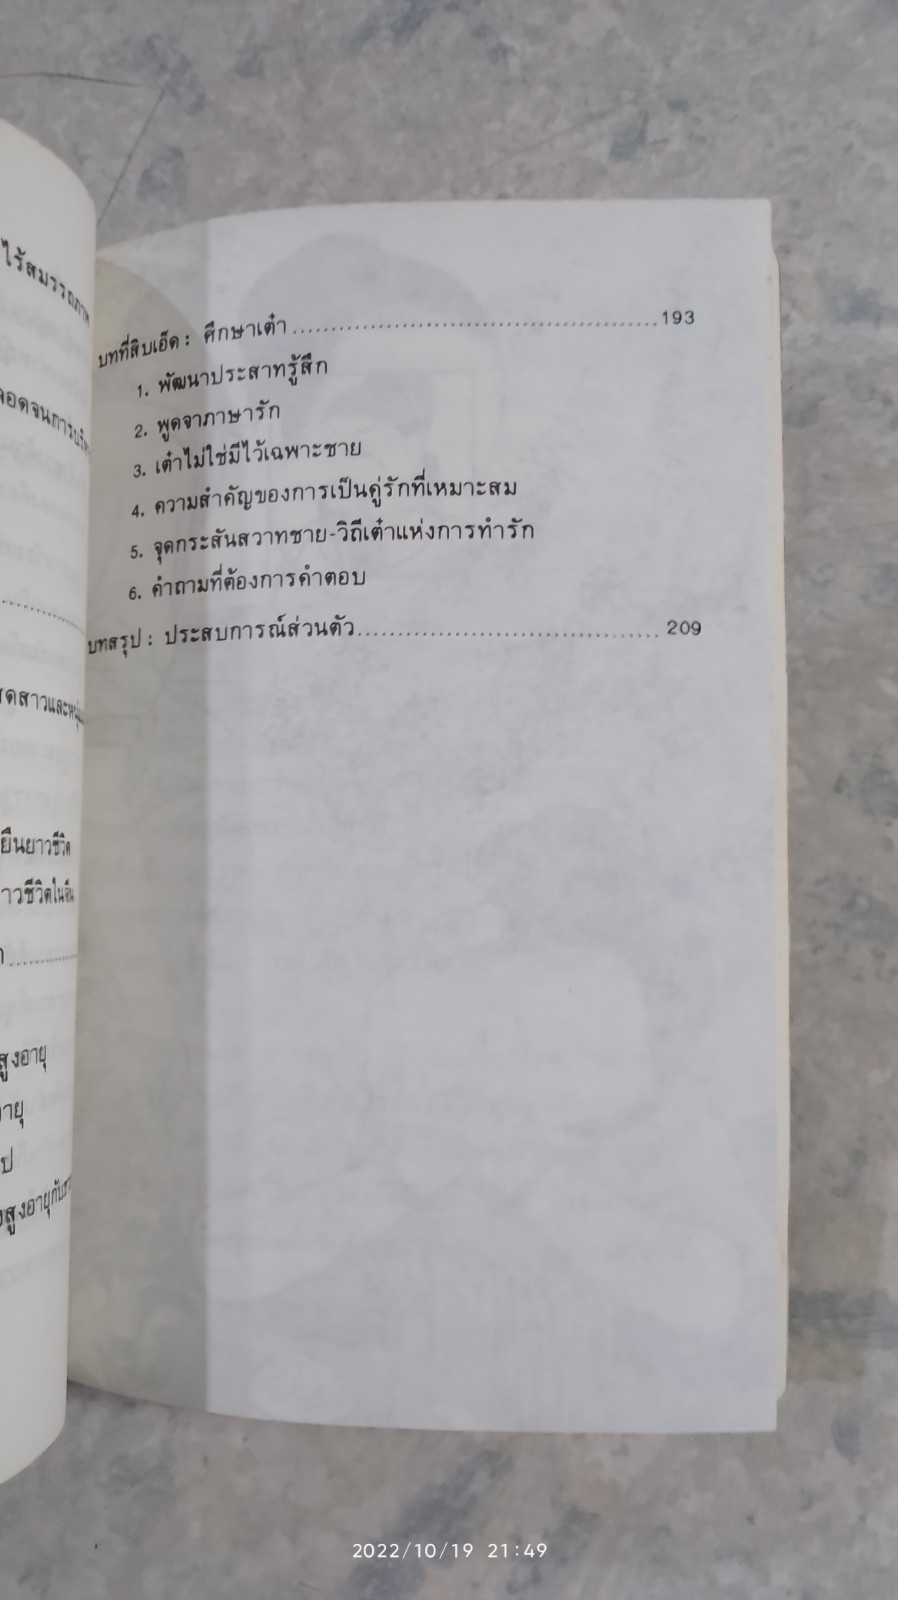 ไร้สมรรถภาพ
ยืนยาวชีวิต
สูงอายุ
บทที่สิบเอ็ด : ศึกษาเต๋า ............................................ 193
1. พัฒนาประสาทรู้สึก
2. พูดจาภาษารัก
3. เต๋าไม่ใช่มีไว้เฉพาะชาย
4. ความสำคัญของการเป็นคู่รักที่เหมาะสม
5. จุดกระสันสวาทชาย-วิถีเต๋าแห่งการทำรัก
6. คำถามที่ต้องการคำตอบ
บทสรุป : ประสบการณ์ส่วนตัว ...................................... 209
2022/10/19 21:49